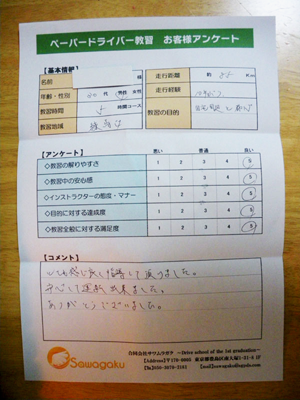 ペーパードライバー教習 お客様アンケート
【基本情報】
名前 様
年齢・性別 代 男性 女性
教習時間 5 時間コース
教習地域 練馬
走行距離 約 Km
走行経験
教習の目的
【アンケート】 悪い 普通 良い
◇教習の解りやすさ 1 2 3 4 5
◇教習中の安心感 1 2 3 4 5
◇インストラクターの態度・マナー 1 2 3 4 5
◇目的に対する達成度 1 2 3 4 5
◇教習全般に対する満足度 1 2 3 4 5
【コメント】
とても感じ良く指導して頂けました。
安心して運転出来ました。
ありがとうございました。
Sawagaku
合同会社サワムラガク ～Drive school of the 1st graduation～